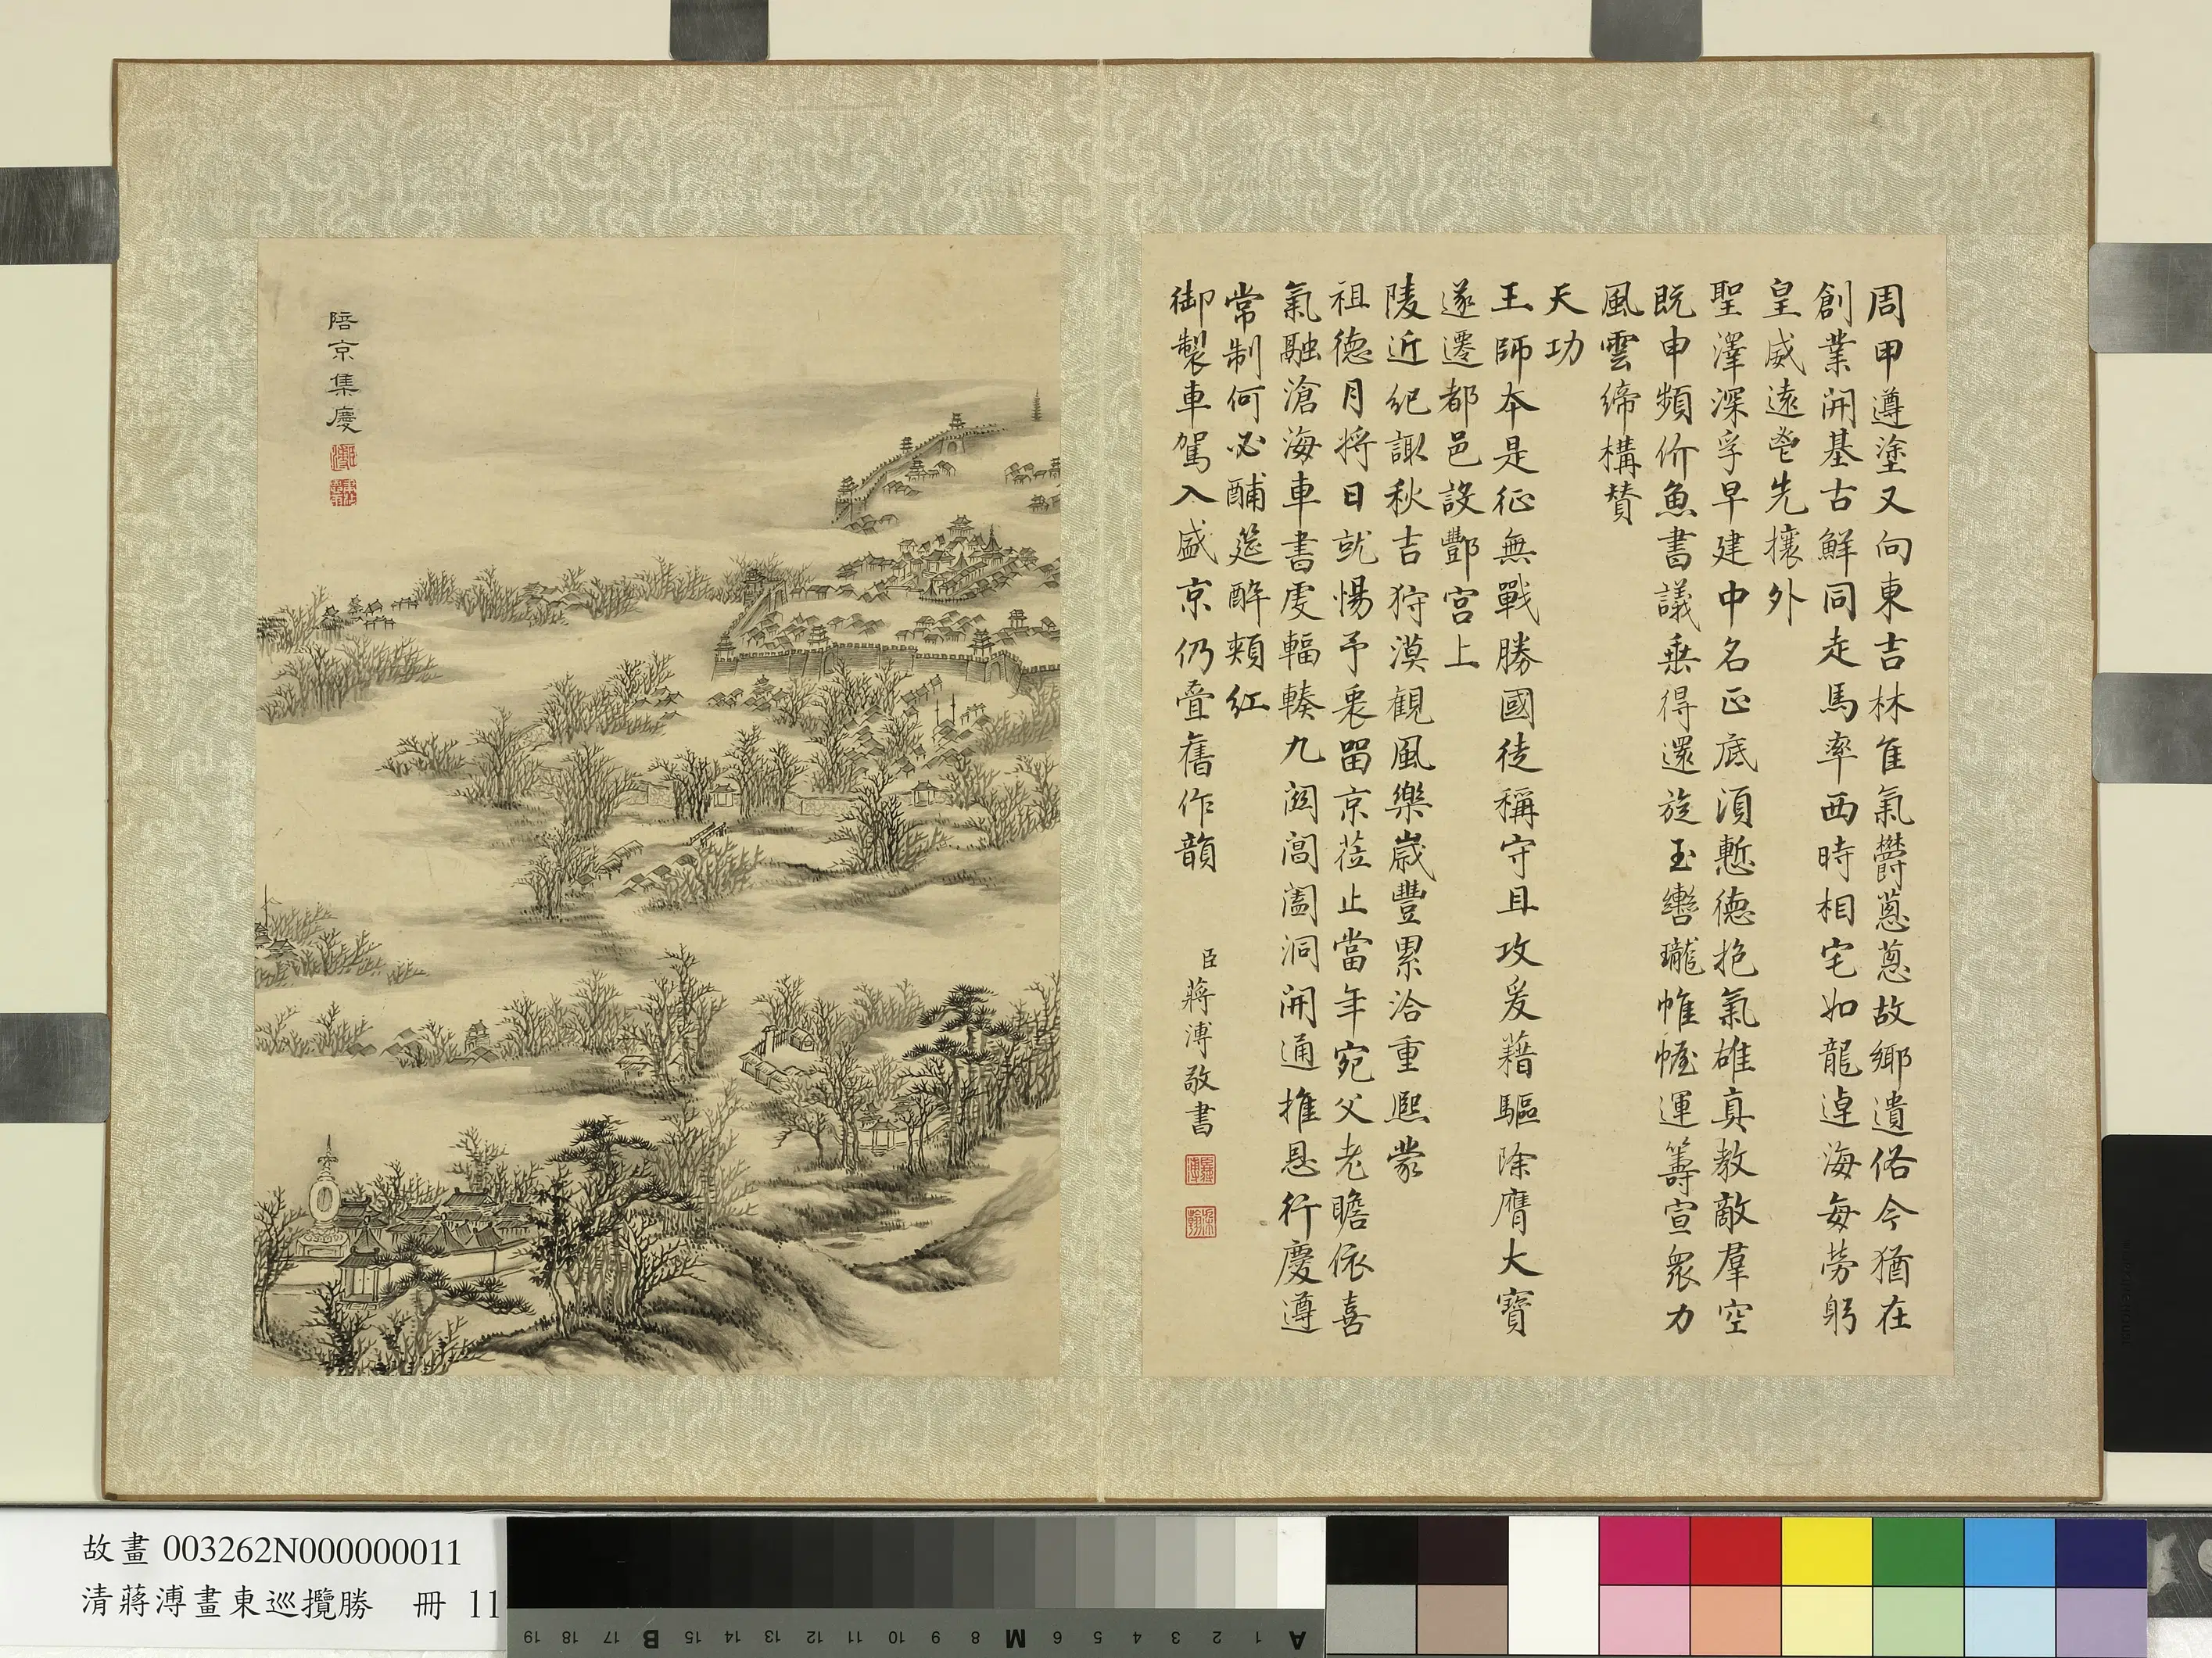 周甲遵塗又向東吉林隹氣欝蔥蔥故鄉遺俗今猶在
創業開基古鮮同走馬率西時相宅如龍逴海每勞躬
皇威遠詟先攘外
聖澤深孚早建中名正底須慙德抱氣雄真教敵羣空
既申頻价魚書議乗得還旋玉轡瓏帷幄運籌宣衆力
風雲締構賛
天功
王師本是征無戰勝國徒稱守且攻爰藉驅除膺大寶
遂遷都邑設酆宮上
陵近紀諏秋吉狩漠觀風樂歲豐累洽重熙蒙
祖德月將日就惕予衷留京莅止當年宛父老瞻依喜
氣融滄海車書處輻輳九閎閶闔洞開通推恩行慶遵
常制何必酺筵醉頰紅
御製車駕入盛京仍疊舊作韻
臣蔣溥敬書
陪京集慶
故畫 003262N000000011
清蔣溥畫東巡攬勝 冊 11
A 1 2 3 4 5 6 M 8 9 10 11 12 13 14 15 B 17 18 19